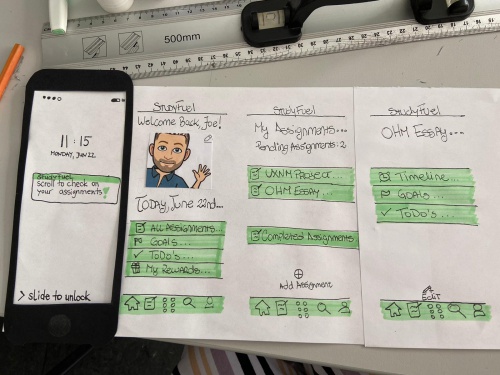 500mm
11:15
MONDAY, JUN 22
StudyFuel
Scroll to check on
your assignments!
> slide to unlock
StudyFuel
Welcome Back, Joe!
TODAY, June 22nd...
ALL ASSIGNMENTS...
GOALS...
ToDo's...
My REWARDS...
StudyFuel
My Assignments...
Pending Assignments: 2
UXNM Project...
OHM ESSAY...
Completed Assignments
Add Assignment
StudyFuel
OHM ESSAY...
Timeline...
GOALS...
ToDo's...
EDIT